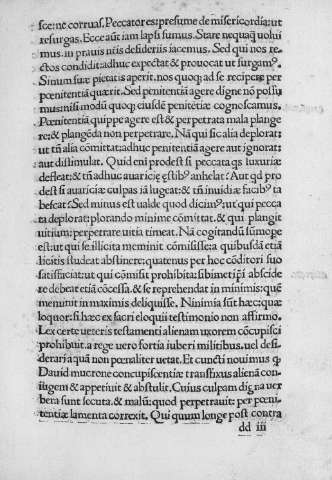 sce: ne corruas. Peccator es: presume de misericordia: ut
resurgas. Ecce aut iam lapsi sumus. Stare nequaq̃ uolui
mus. in prauis nr̃is desideriis iacemus. Sed qui nos re-
ctos condidit: adhuc expectat & prouocat ut surgamꝰ.
Sinum suæ pietatis aperit. nos quoq; ad se recipere per
pœnitentiã quærit. Sed penitentiã agere digne nõ possu
mus: nisi modũ quoq; eiusdẽ penitẽtiæ cognoscamus.
Pœnitentia quippe agere est & perpetrata mala plange
re: & plangẽda non perpetrare. Nã qui sic alia deplorat:
ut tñ alia cõmittat: adhuc penitentiã agere aut ignorat:
aut dissimulat. Quid eni prodest si peccata qs luxuriæ
defleat: & tñ adhuc auariciæ ęstibꝰ anhelat? Aut qd pro
dest si auariciæ culpas iã lugeat: & tñ inuidiæ facibꝰ ta
bescat? Sed minus est ualde quod dicimꝰ: ut qui pecca
ta deplorat: plorando minime cõmittat. & qui plangit
uitium: perpetrare uitia timeat. Nã cogitandũ sũmope
est: ut qui se illicita meminit cõmisisse: a quibusdã etiã
licitis studeat abstinere: quatenus per hoc cõditori suo
satisfaciat: ut qui cõmisit prohibita: sibimetip̃i abscide
re debeat etiã cõcessa. & se reprehendat in minimis: quẽ
meminit in maximis deliquisse. Nimia sũt hæc: quæ
loquor: si hæc ex sacri eloquii testimonio non affirmo.
Lex certe ueteris testamenti alienam uxorem cõcupisci
prohibuit. a rege uero fortia iuberi militibus. uel desi-
derari aquã non pœnaliter uetat. Et cuncti nouimus q̃
Dauid mucrone concupiscentiæ transfixus alienã con-
iugem & appetiuit & abstulit. Cuius culpam digna uer
bera sunt secuta. & malũ: quod perpetrauit: per pœni-
tentiæ lamenta correxit. Qui quum longe post contra
dd iii